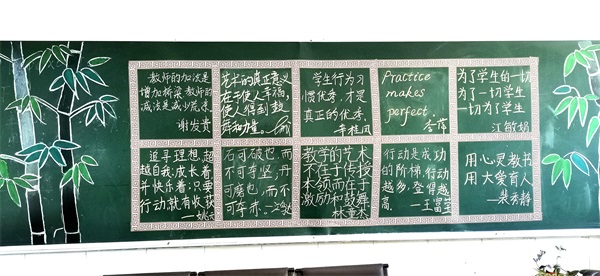 教师的加法是
增加桥梁,教师的
减法是减少荒凉。
谢发贵
艺术的真正意义
在于使人幸福,
使人得到鼓
舞和力量。
学生行为习
惯优秀,才是
真正的优秀。
辛桂凤
Practice
makes
perfect.
李萍
为了学生的一切
为了一切学生
一切为了学生
江敏娟
追寻理想,超
越自我,成长着
并快乐着,只要
行动就有收获
石可破也,而
不可夺坚,丹
可磨也,而不
可夺赤。
教学的艺术
不在于传授
本领而在于
激励和鼓舞
林重术
行动是成功
的阶梯,行动
越多,登得越
高.
—王富军
用心灵教书
用大爱育人
—裴秀静